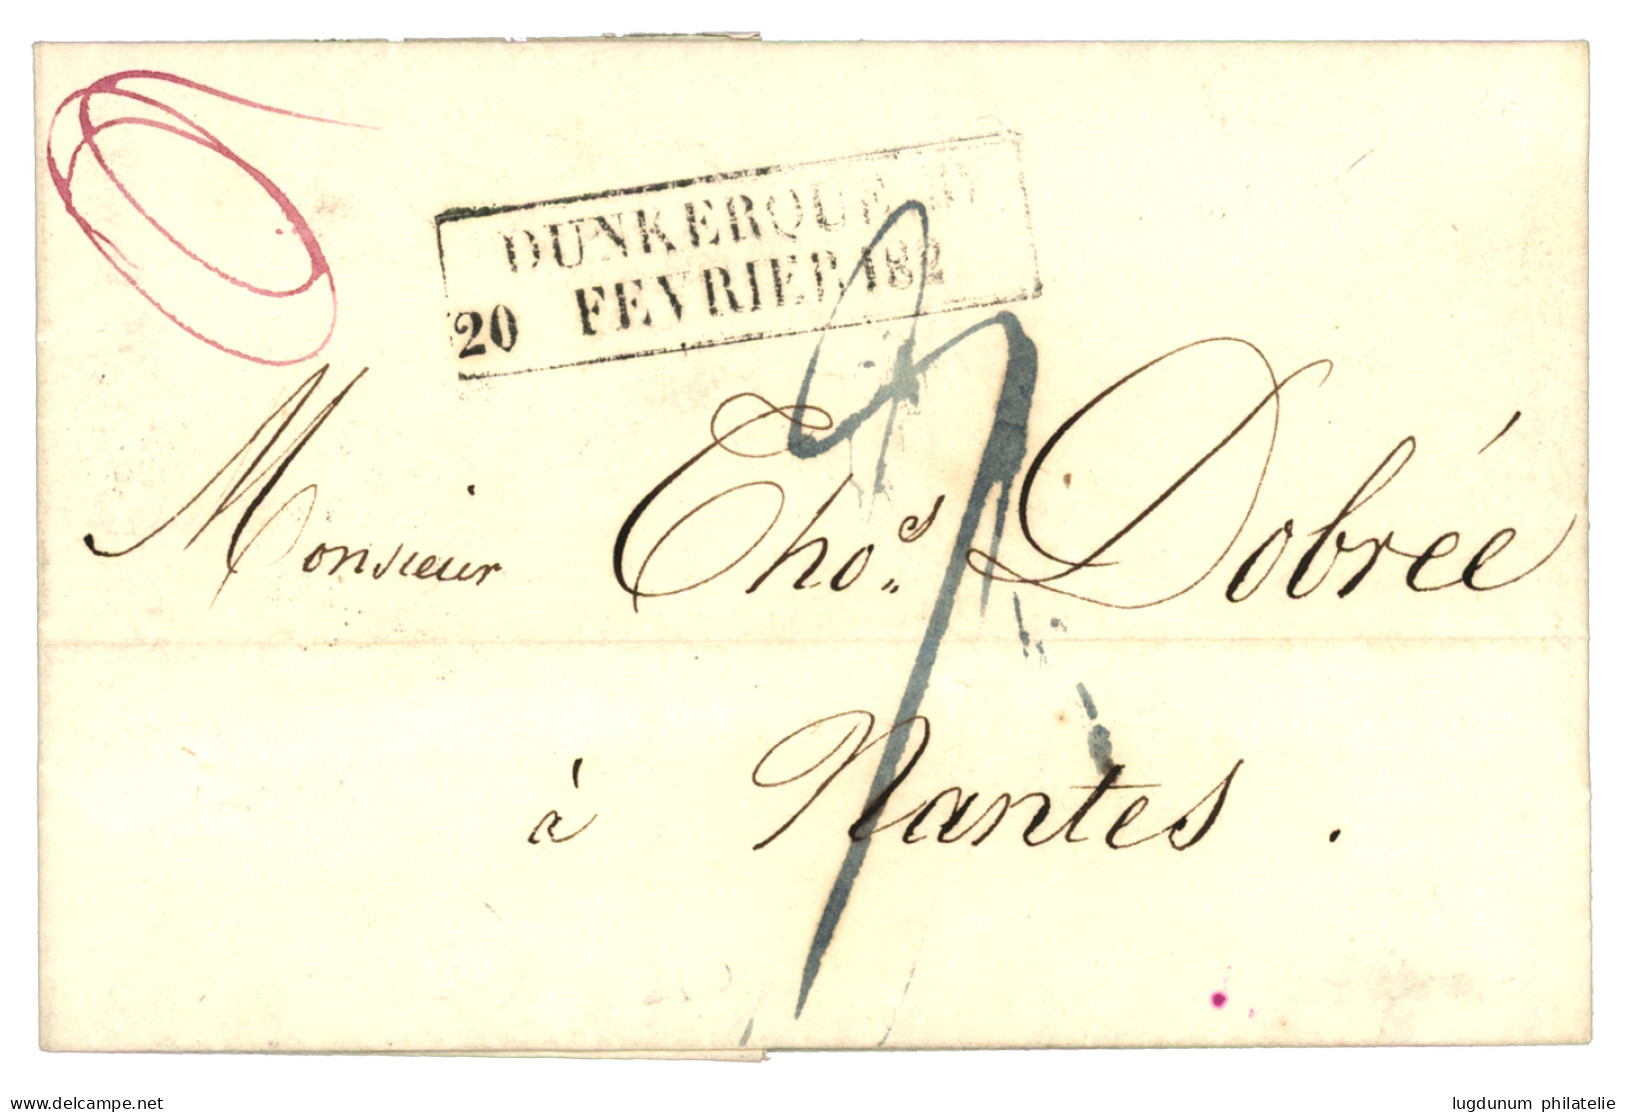 DUNKERQUE
20 FEVRIER 182
Monsieur Thos. Dobrée
à Nantes.
www.delcampe.net
lugdunum philatelie